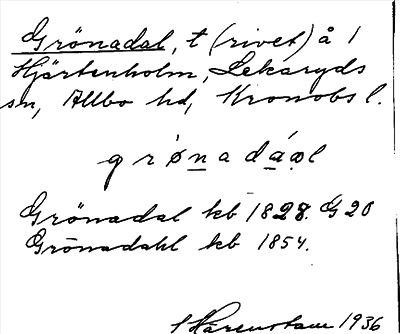 Grönadal, t (rivet) å 1
Hjärtenholm, Lekaryds
sn, Allbo hd, Kronobs l.
grò̈nadáal
Grönadal kb 1828. G20
Grönadahl kb 1854.
Härenstam 1936